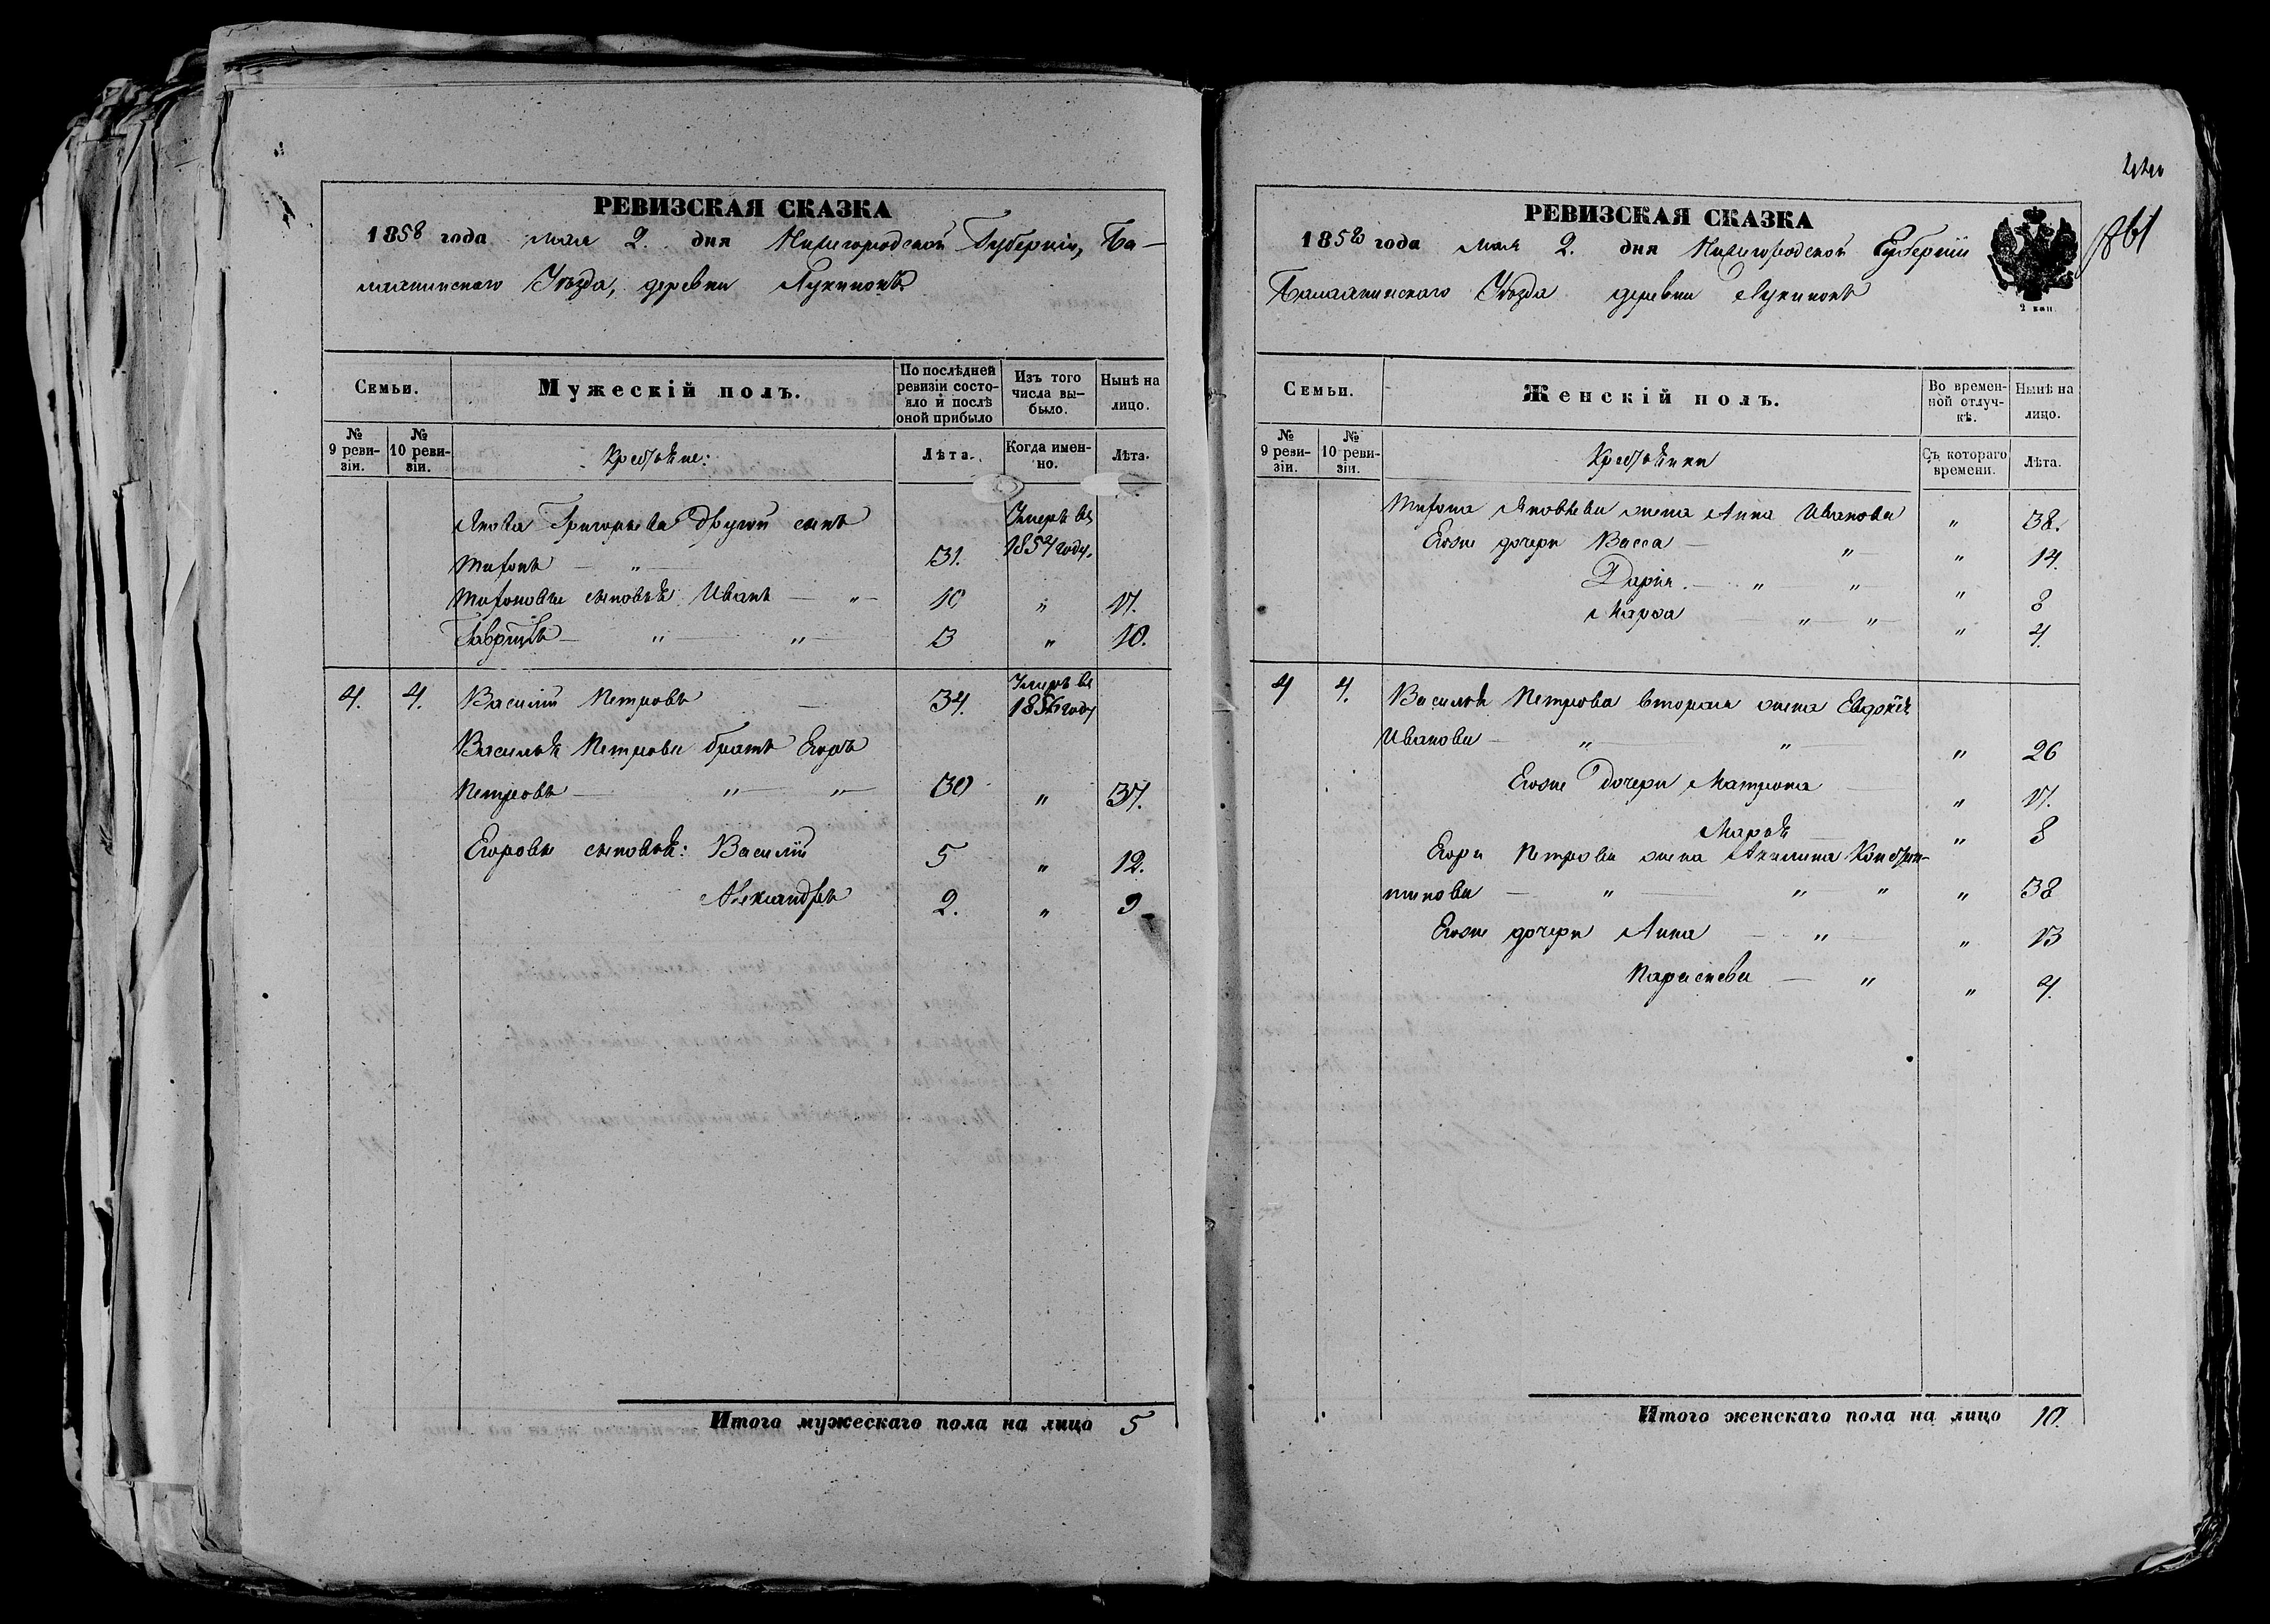 РЕВИЗСКАЯ СКАЗКА
1858 года мая 2. дня Нижегородской Губерніи, Ба-
лахнинскаго Уѣзда, деревни Лукинокъ
Семьи.
Мужескій полъ.
По послѣдней ревизіи состояло и послѣ оной прибыло
Изъ того числа выбыло.
Нынѣ на лицо.
№ 9 ревизіи.
№ 10 ревизіи.
Крестьяне:
Лѣта.
Когда именно.
Лѣта.
Якова Григорьева другой сынъ Умеръ въ
Мифонъ — " 31. 1854 году.
Мифоновы сыновья: Иванъ — " — 10 " 17.
Гаврило — " — " — 3 " 10.
4. 4. Василій Петровъ — 34. Умеръ въ 1856 году
Василья Петрова братъ Егоръ
Петровъ — " — " — 30 " 37.
Егоровы сыновья: Василій 5 " 12.
Александръ 2. " 9
Итого мужескаго пола на лицо 5
РЕВИЗСКАЯ СКАЗКА
1858 года мая 2. дня Нижегородской Губерніи
Балахнинскаго Уѣзда деревни Лукинокъ
2 коп.
Семьи.
Женскій полъ.
Во временной отлучкѣ.
Нынѣ на лицо.
№ 9 ревизіи.
№ 10 ревизіи.
Крестьянки
Съ котораго времени.
Лѣта.
Мифона Яковлева жена Анна Иванова " 38.
Егоже дочери Васса — " — " 14.
Дарія. — " " " 8
Марфа — " — " — " 4.
4 4. Василья Петрова вторая жена Евдокія
Иванова — " — " — " 26
Егоже дочери Матрона — " 17.
Марья — " 8
Егора Петрова жена Акилина Констан-
тинова — " — " " " 38
Егоже дочери Анна — " — " 13
Парасковья — " " 4.
Итого женскаго пола на лицо 10.